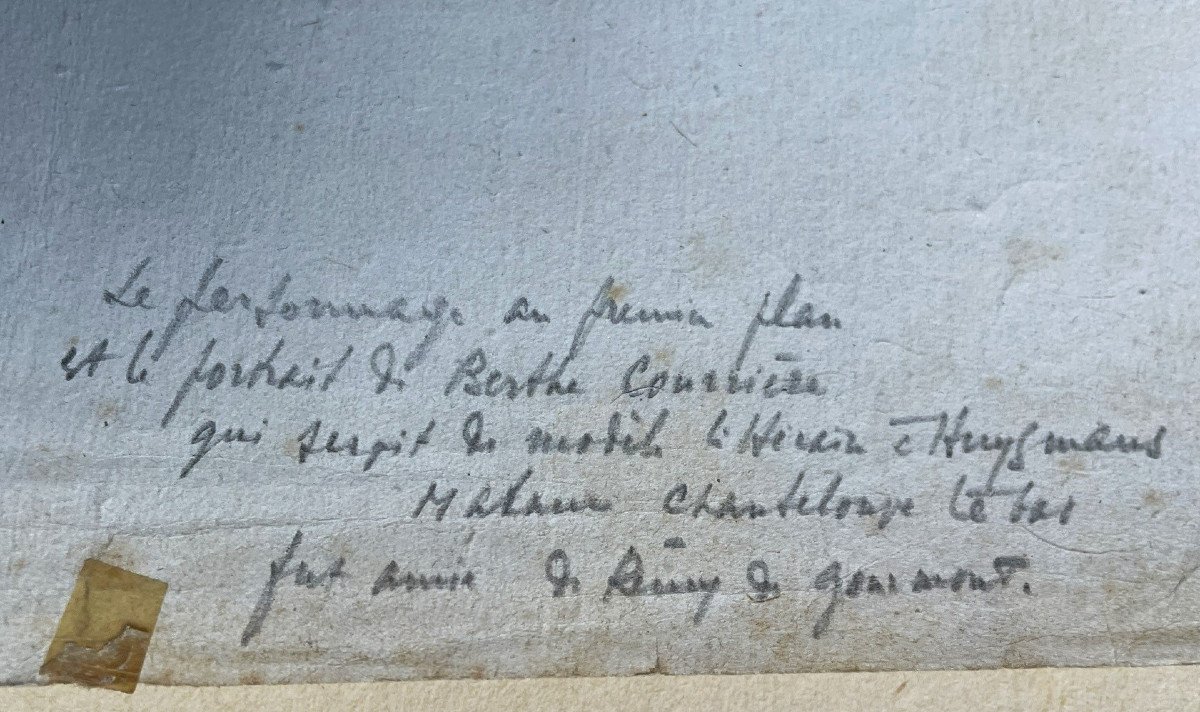 Le personnage au premier plan
est le portrait de Berthe Courrière
qui servit de modèle à Huysmans
Madame Chanteloupe
fut amie de Rémy de Gourmont.